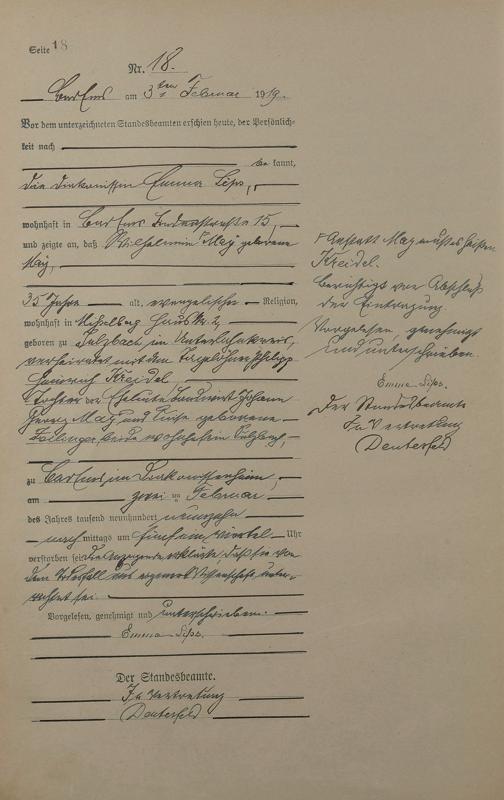 Seite 18
Nr. 18.
Bad Ems am 3ten Februar 1919.
Vor dem unterzeichneten Standesbeamten erschien heute, der Persönlich-
keit nach
be kannt,
die Diakonissin Emma Lips,
wohnhaft in Bad Ems 15,
und zeigte an, daß Wilhelmine May geborene
May,
35 Jahre alt, evangelischer Religion,
wohnhaft in Misselberg Haus Nr. 2,
geboren zu Sulzbach im Unterlahnkreis,
verheiratet mit dem Tagelöhner Philipp
Heinrich Kreidel
Tochter der Eheleute Landwirt Johann
Georg May und Luise geborene
beide wohnhaft in Sulzbach,
zu Bad Ems im Diakonissenheim,
am zwei ten Februar
des Jahres tausend neunhundert neunzehn
nach mittags um fünf ein viertel Uhr
verstorben sei. Die Anzeigende erklärte, daß sie von
dem Todesfall aus eigener Wissenschaft unter-
richtet sei.
Vorgelesen, genehmigt und unterschrieben.
Emma Lips.
Der Standesbeamte.
In Vertretung
Deuterfeld
Anstatt May muß es heißen
Kreidel.
Berichtigt vor Abschluß
der Eintragung.
Vorgelesen, genehmigt
und unterschrieben.
Emma Lips.
Der Standesbeamte
In Vertretung
Deuterfeld